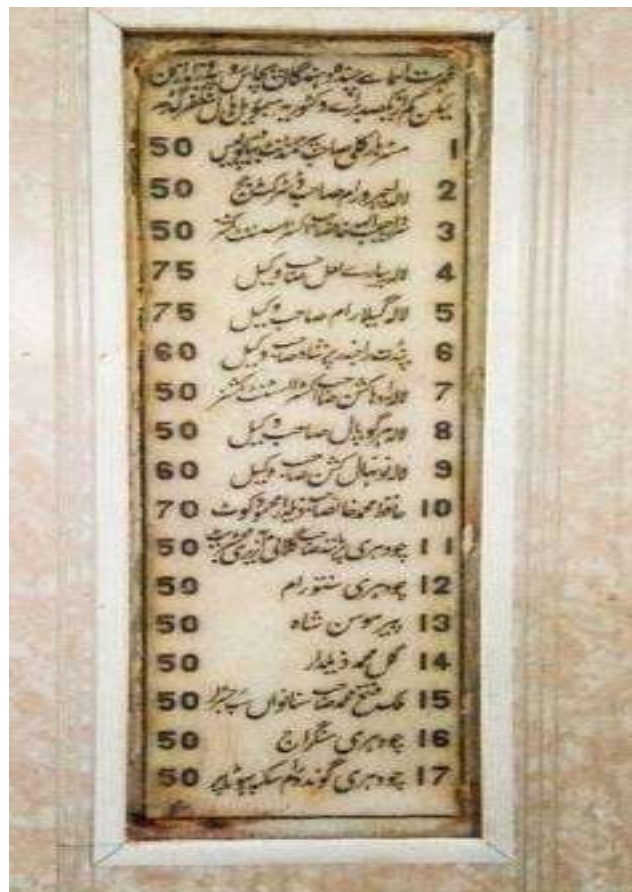 فہرست اسمائے چندہ دہندگان پچاس روپیہ یا زائد ازیں
لیکن کم از یکصد برائے وکٹوریہ میموریل ہال مظفر گڑھ
1 مسٹر مارکلی صاحب پولیس 50
2 لالہ صاحب ڈسٹرکٹ جج 50
3 خان صاحب اکسٹرا اسسٹنٹ کمشنر 50
4 لالہ پیارے لعل صاحب وکیل 75
5 لالہ گیلا رام صاحب وکیل 75
6 پنڈت راجندر پرشاد صاحب وکیل 60
7 لالہ رادھا کشن صاحب اکسٹرا اسسٹنٹ کمشنر 50
8 لالہ ہرگوپال صاحب وکیل 50
9 لالہ نونہال کشن صاحب وکیل 60
10 حافظ محمد خانصاحب ذیلدار محمود کوٹ 70
11 چودہری صاحب آنریری مجسٹریٹ 50
12 چودہری سنتو رام 50
13 پیر موسن شاہ 50
14 گل محمد ذیلدار 50
15 ملک فتح محمد صاحب سنانواں 50
16 چودہری سنگراج 50
17 چودہری گوند رام سکنہ 50